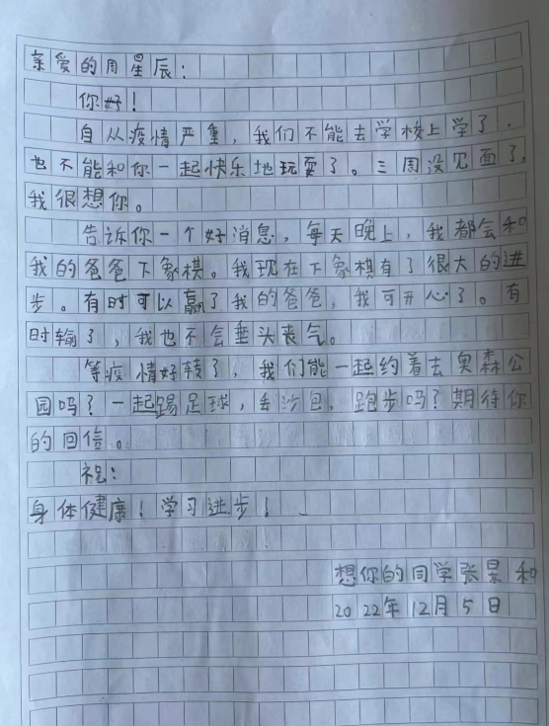 亲爱的周星辰：
你好！
自从疫情严重，我们不能去学校上学了，
也不能和你一起快乐地玩耍了。三周没见面了，
我很想你。
告诉你一个好消息，每天晚上，我都会和
我的爸爸下象棋。我现在下象棋有了很大的进
步。有时可以赢了我的爸爸，我可开心了。有
时输了，我也不会垂头丧气。
等疫情好转了，我们能一起约着去奥森公
园吗？一起踢足球，丢沙包，跑步吗？期待你
的回信。
祝：
身体健康！学习进步！
想你的同学张景和
2022年12月5日